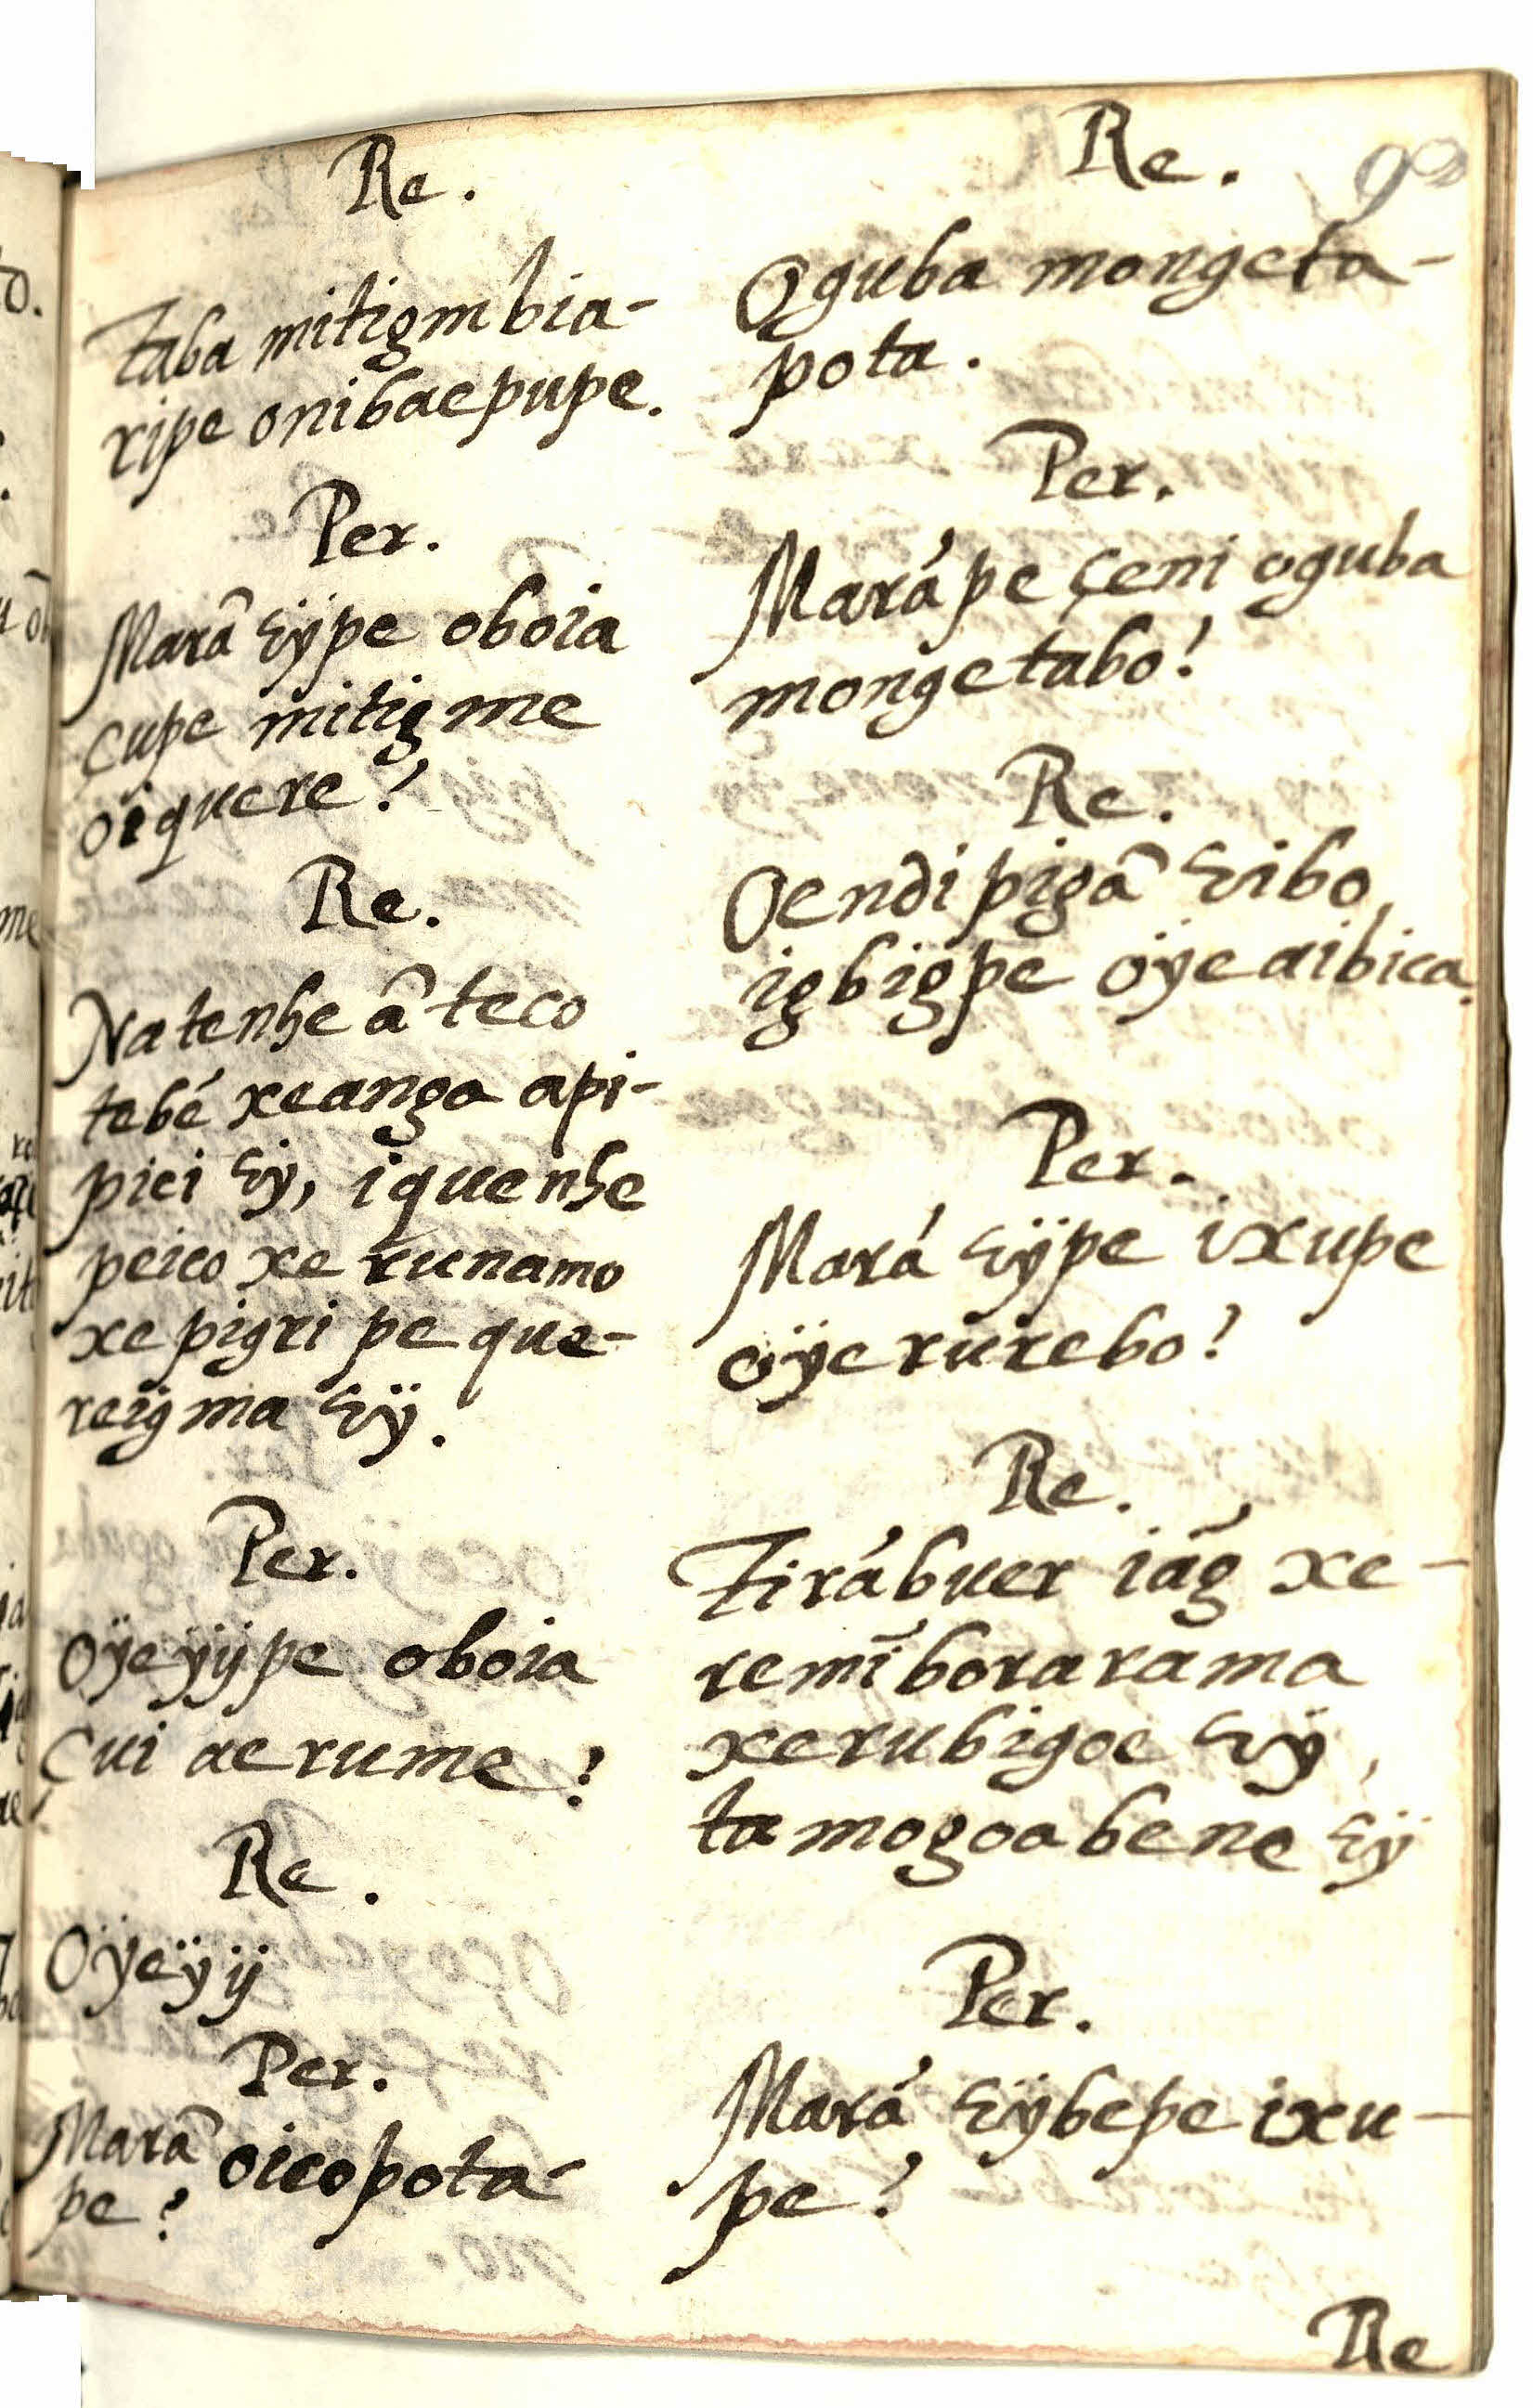 Re.
Taba mitigmbia-
ripe onibaepupe.
Per.
Marâ eÿpe oboia
çupe mitigme
oiquere?
Re.
Natenhe â teco
tebé xeanga api-
pici eÿ, iquenhe
peico xe runamo
xe pigri pe que-
reigma eÿ.
Per.
oÿeÿijpe oboia
çui aerume?
Re.
Oÿeÿij
Per.
Marâ oicopota-
pe?
Re.
Oguba mongeta-
pota.
Per.
Marápe çeni oguba
mongetabo?
Re.
Oendipigâ eibo,
igbigpe oÿeaibica.
Per.
Mará eÿpe ixupe
oÿerurebo?
Re.
Tirábuer iãg xe-
remĩborarama
xerubigoe eÿ,
tamogoabene eÿ
Per.
Mará eÿbepe ixu-
pe?
Re